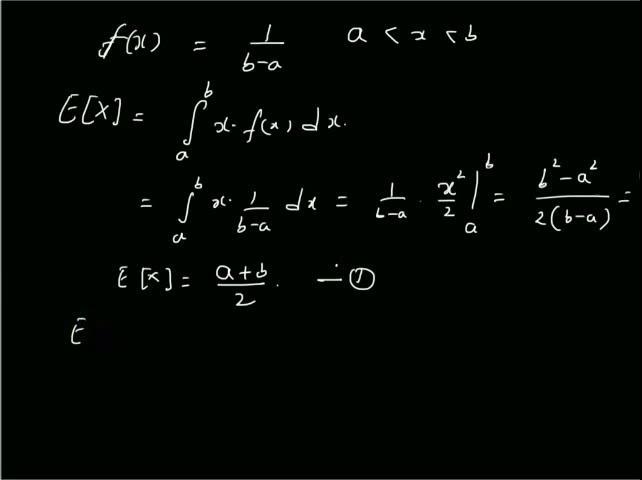 f(x) = 1/(b-a) a < x < b
E[X] = ∫_a^b x. f(x) dx.
= ∫_a^b x. 1/(b-a) dx = 1/(b-a) . x²/2 |_a^b = (b² - a²)/(2(b-a)) =
E[x] = (a+b)/2 . — ①
E